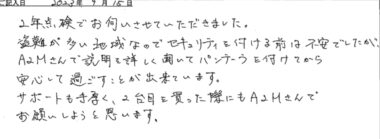 ご記入日 2023年9月15日
2年点検でお伺いさせていただきました。
盗難が多い地域なのでセキュリティを付ける前は不安でしたが、
A2Mさんで説明を詳しく聞いてパンテーラを付けてから
安心して過ごすことが出来ています。
サポートも手厚く、2台目を買った際にもA2Mさんで
お願いしようと思います。